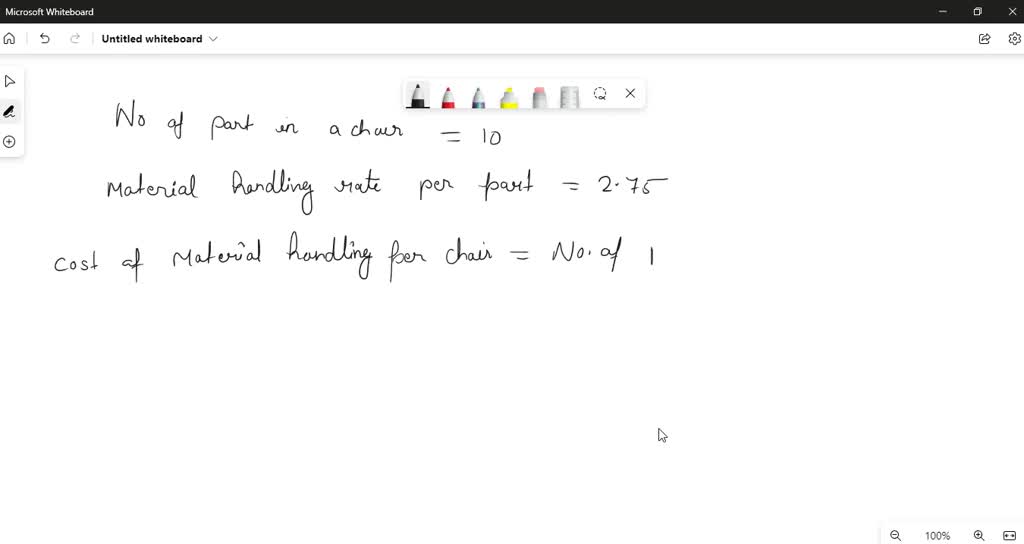 Microsoft Whiteboard
Untitled whiteboard
No of part in a chair = 10
Material handling rate per part = 2.75
Cost of Material handling per chair = No. of
100%